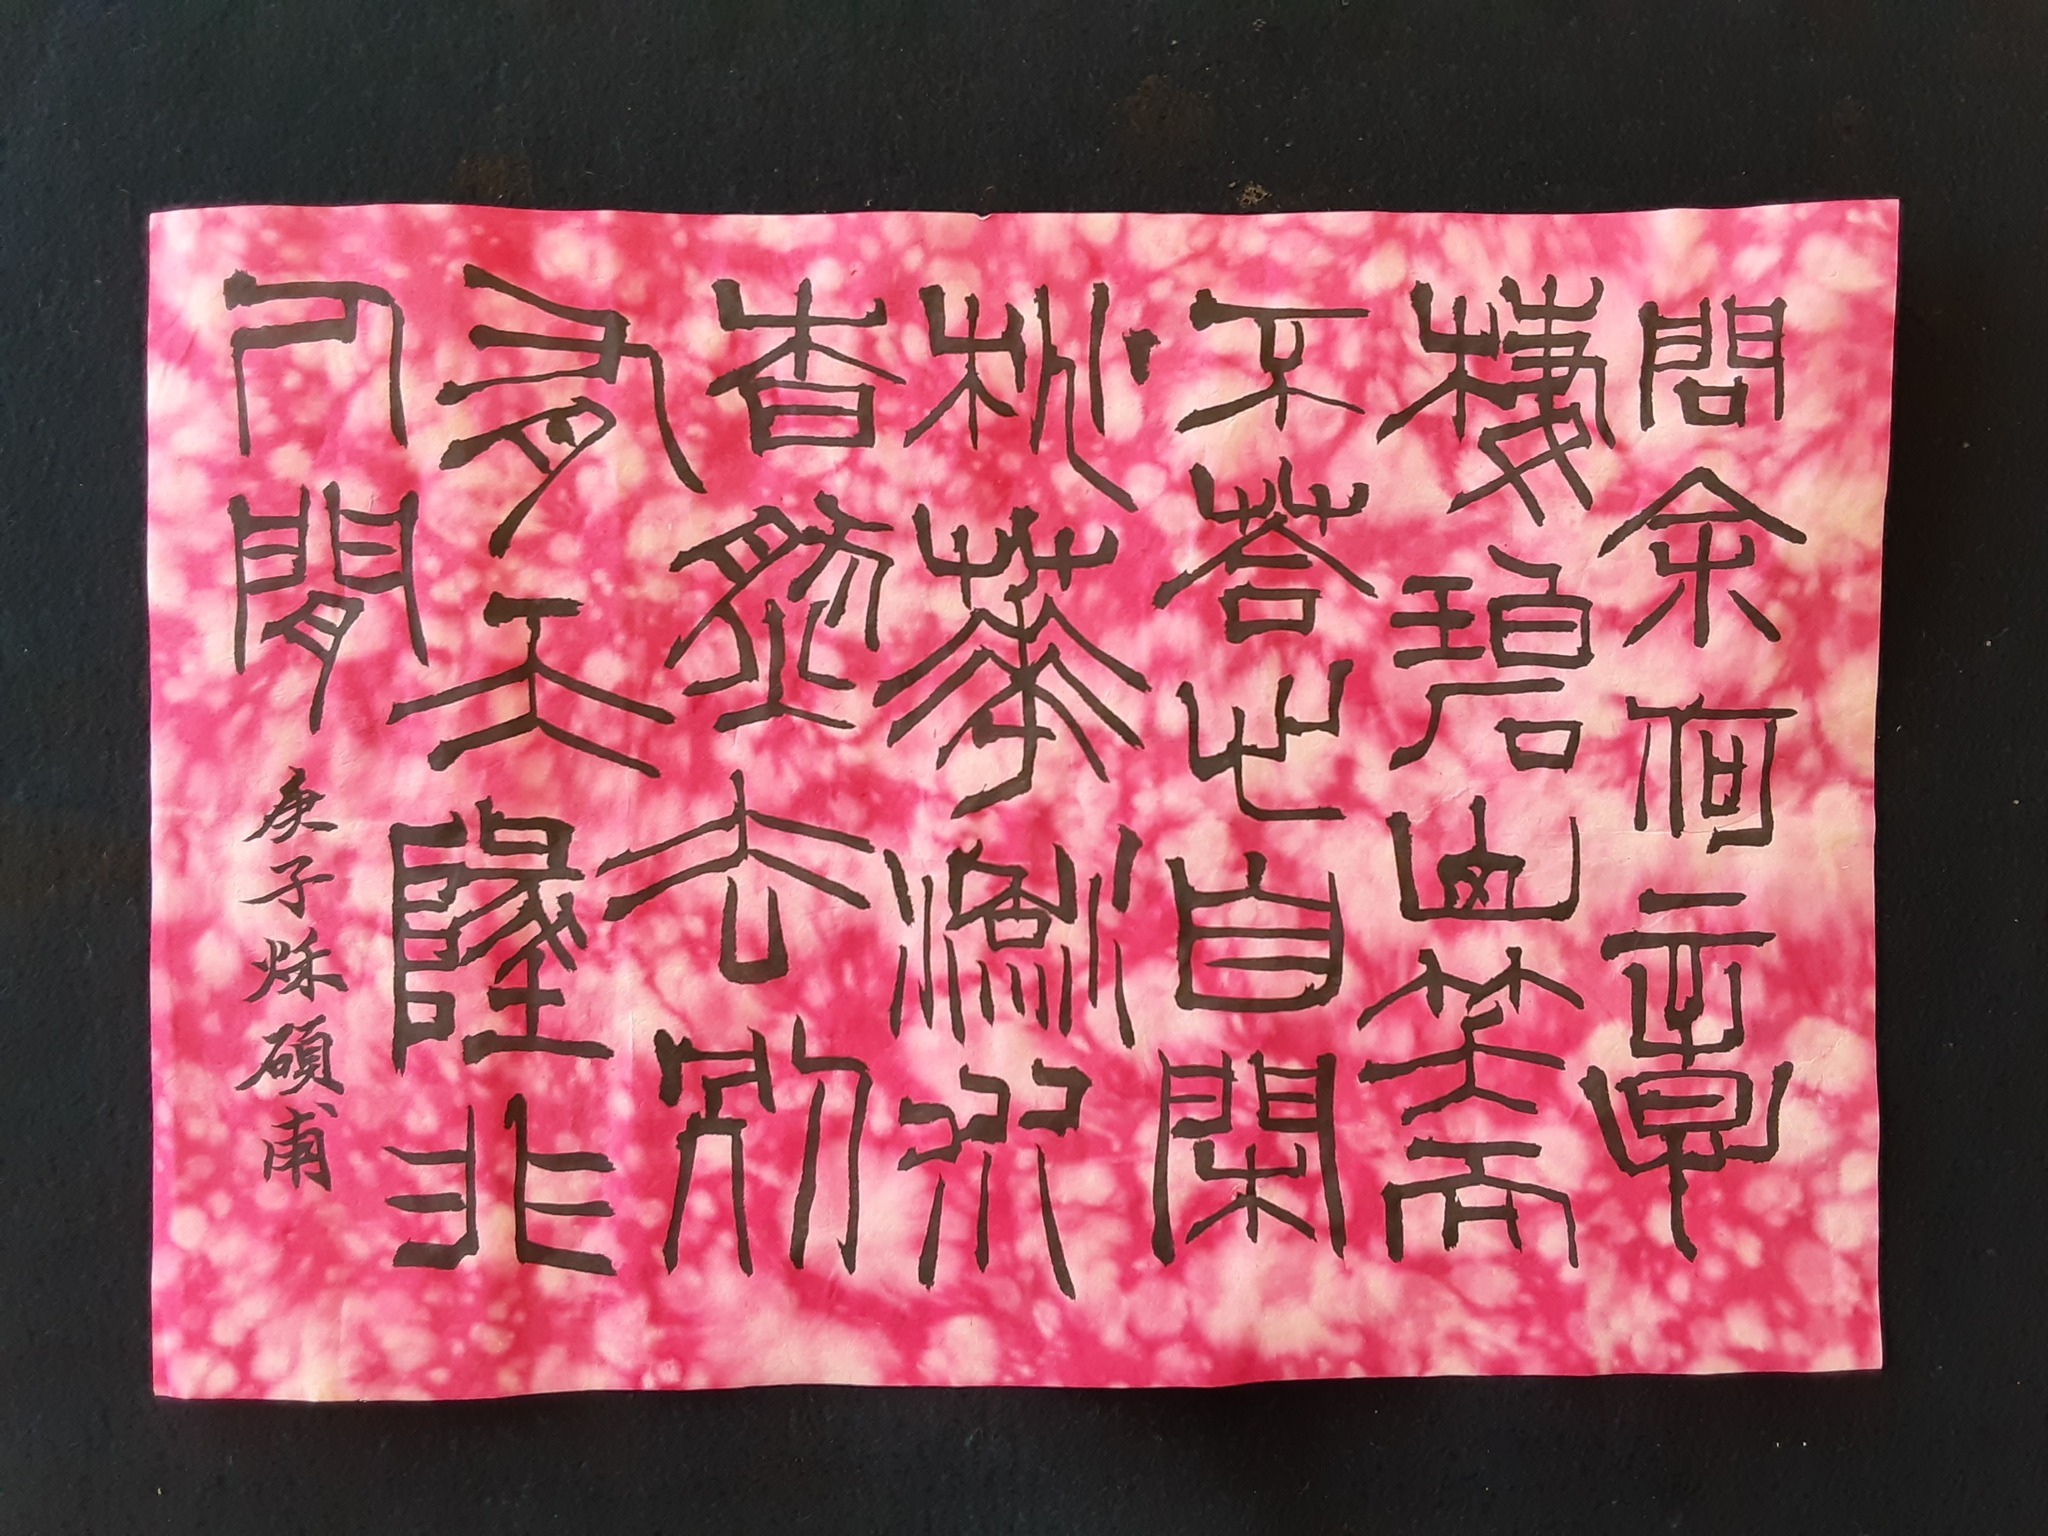 問余何事
棲碧山笑而
不荅心自閑
桃華流水
杳然去別
有天墬非
人間
庚子秋碩甫